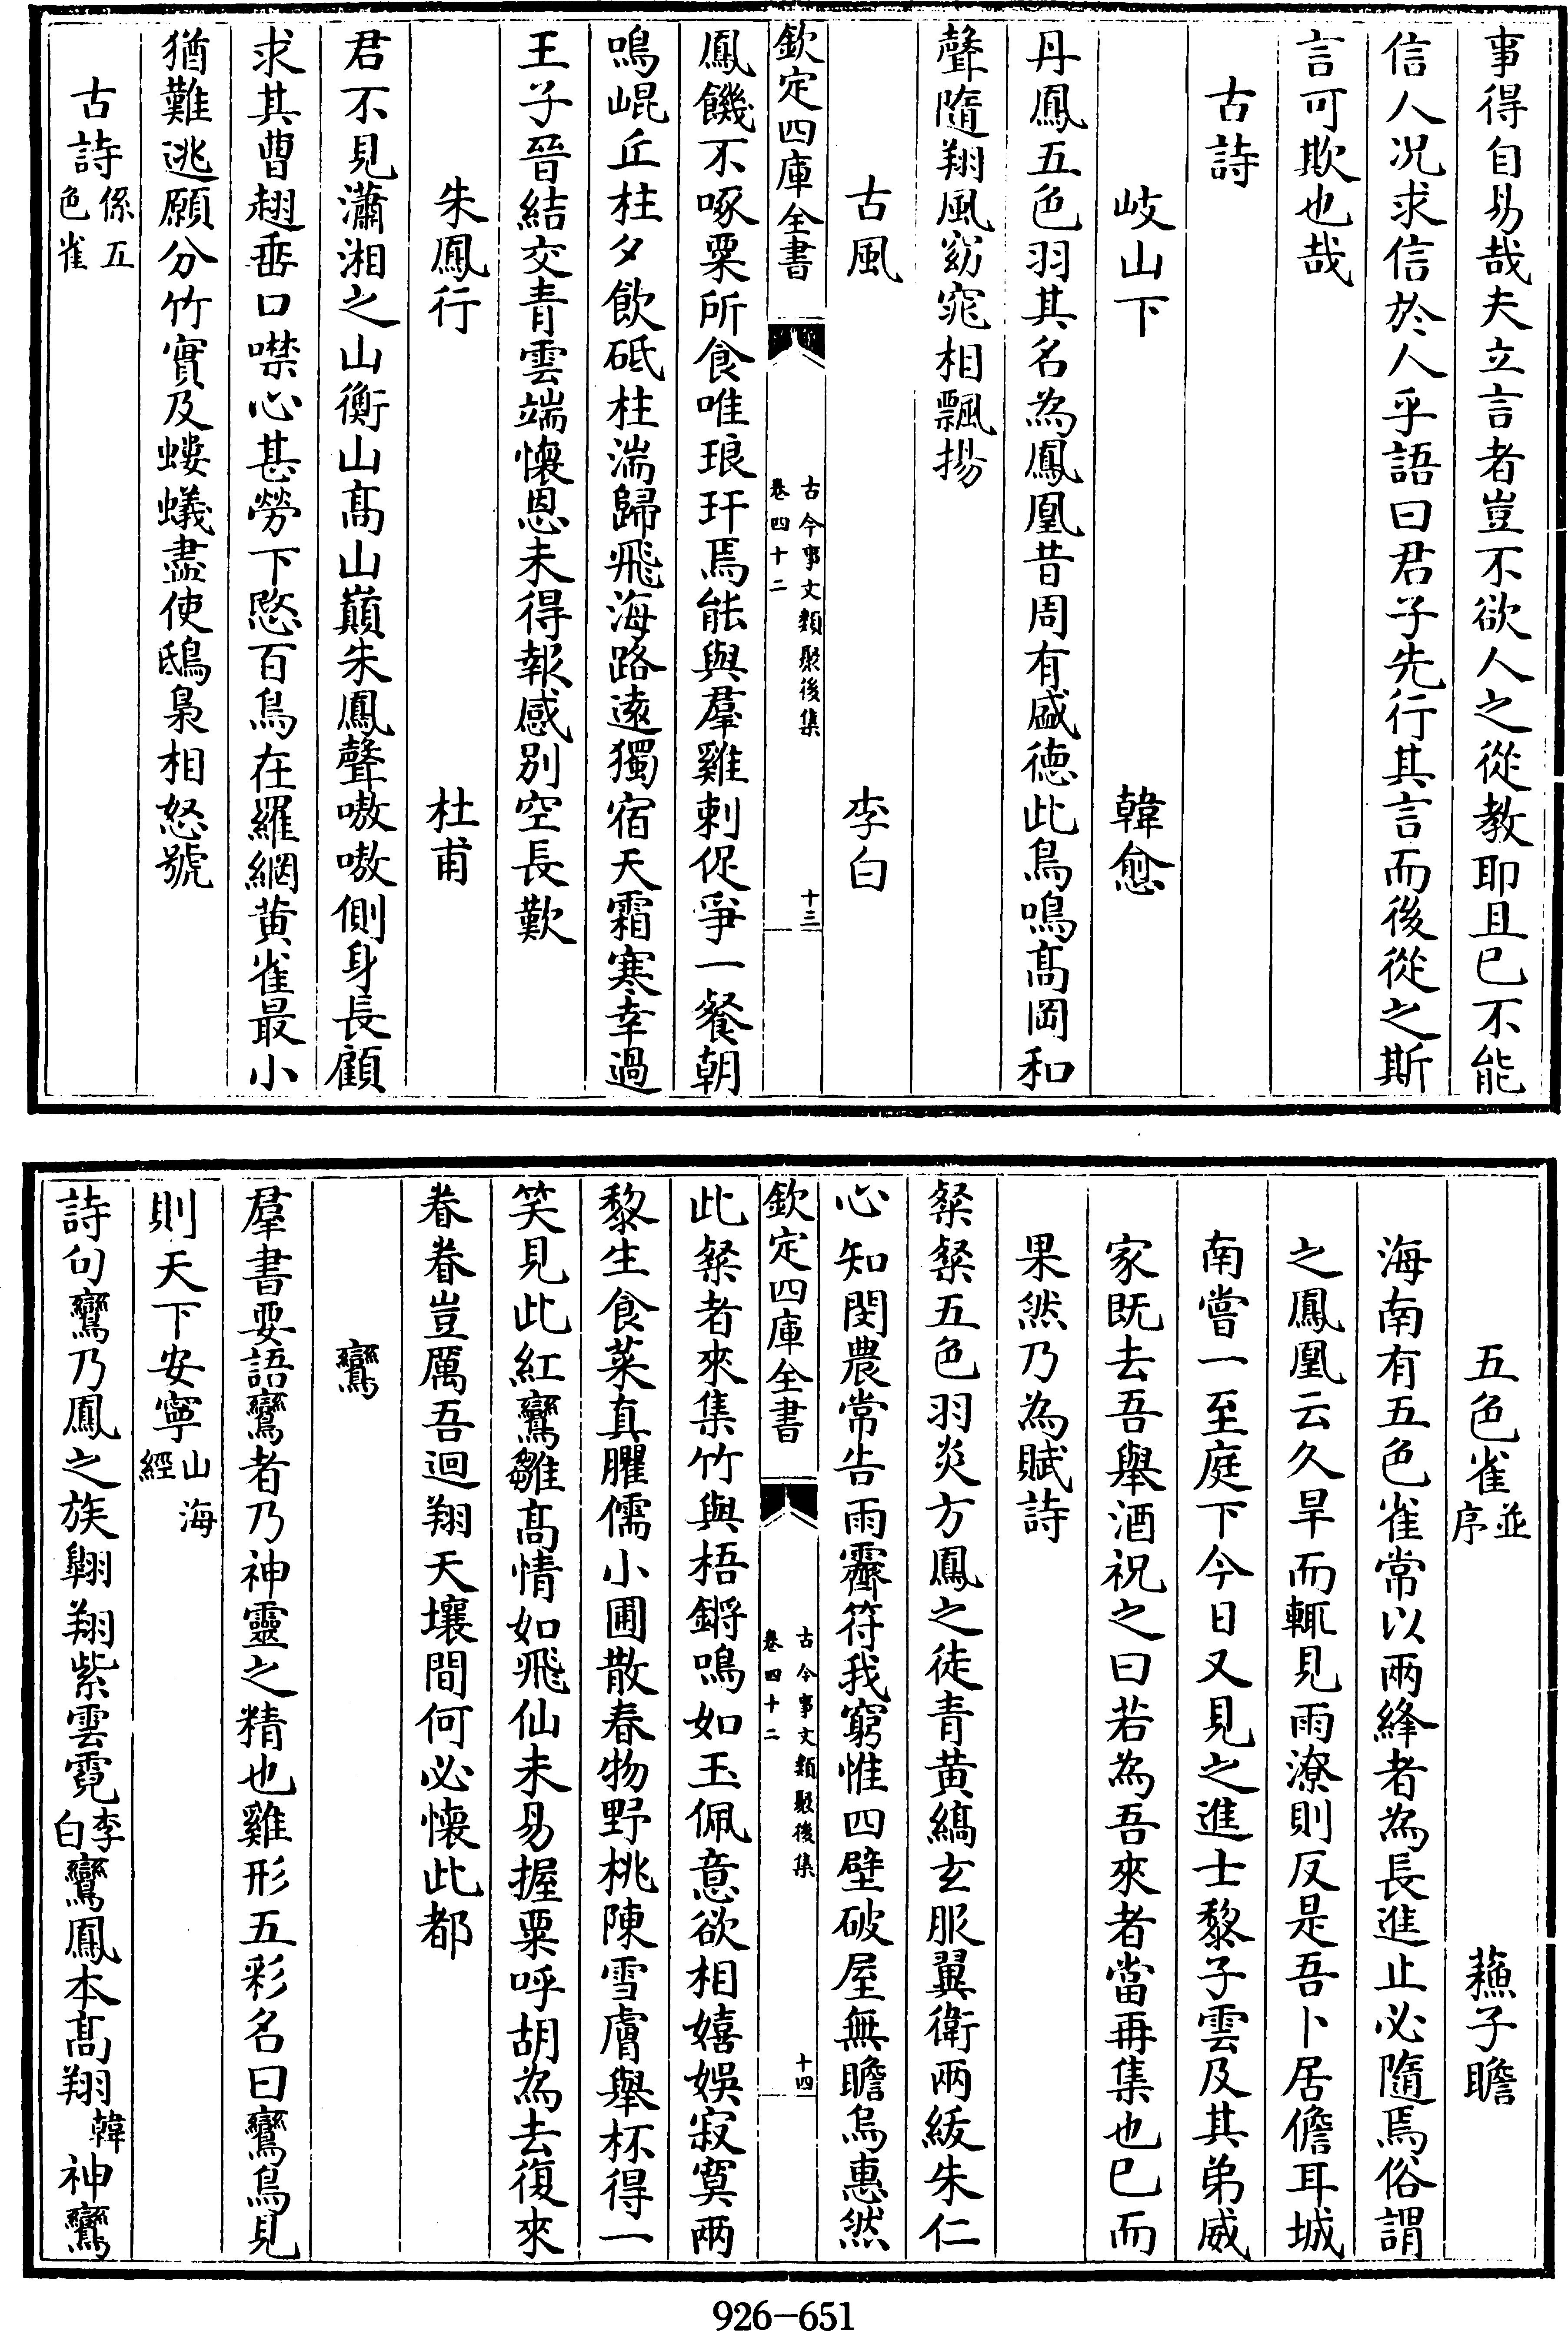 事得自易哉夫立言者豈不欲人之從教耶且已不能
信人况求信於人乎語曰君子先行其言而後從之斯
言可欺也哉
古詩
岐山下 韓愈
丹鳳五色羽其名為鳳凰昔周有盛徳此鳥鳴髙岡和
聲隨翔風窈窕相飄揚
古風 李白
欽定四庫全書 古今事文類聚後集 卷四十二 十三
鳳饑不啄粟所食唯琅玕焉能與羣雞刺促爭一餐朝
鳴崐丘柱夕飲砥柱湍歸飛海路遠獨宿天霜寒幸過
王子晉結交青雲端懷恩未得報感别空長歎
朱鳳行 杜甫
君不見瀟湘之山衡山髙山巔朱鳳聲嗷嗷側身長顧
求其曹翅垂口噤心甚勞下愍百鳥在羅網黄雀最小
猶難逃願分竹實及螻蟻盡使鴟梟相怒號
古詩 係五色雀
五色雀 並序 蘓子瞻
海南有五色雀常以兩絳者為長進止必隨焉俗謂
之鳳凰云久旱而輒見雨潦則反是吾卜居儋耳城
南嘗一至庭下今日又見之進士黎子雲及其弟威
家既去吾舉酒祝之曰若為吾來者當再集也已而
果然乃為賦詩
粲粲五色羽炎方鳳之徒青黄縞玄服翼衛兩紱朱仁
心知閔農常告雨霽符我窮惟四壁破屋無瞻烏惠然
此粲者來集竹與梧鏘鳴如玉佩意欲相嬉娱寂寞兩
欽定四庫全書 古今事文類聚後集 卷四十二 十四
黎生食菜真臞儒小圃散春物野桃陳雪膚舉杯得一
笑見此紅鸞雛髙情如飛仙未易握粟呼胡為去復來
眷眷豈厲吾迴翔天壤間何必懷此都
鸞
羣書要語鸞者乃神靈之精也雞形五彩名曰鸞鳥見
則天下安寧 山海經
詩句鸞乃鳳之族翺翔紫雲霓 李白 鸞鳳本髙翔 韓 神鸞
926-651